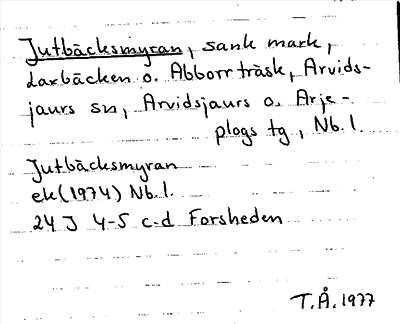 Jutbäcksmyran, sank mark,
Laxbäcken o. Abborrträsk, Arvids-
jaurs sn, Arvidsjaurs o. Arje-
plogs tg, Nb.l.
Jutbäcksmyran
ek(1974) Nb.l.
24 J 4-5 c-d Forsheden
T.Å. 1977